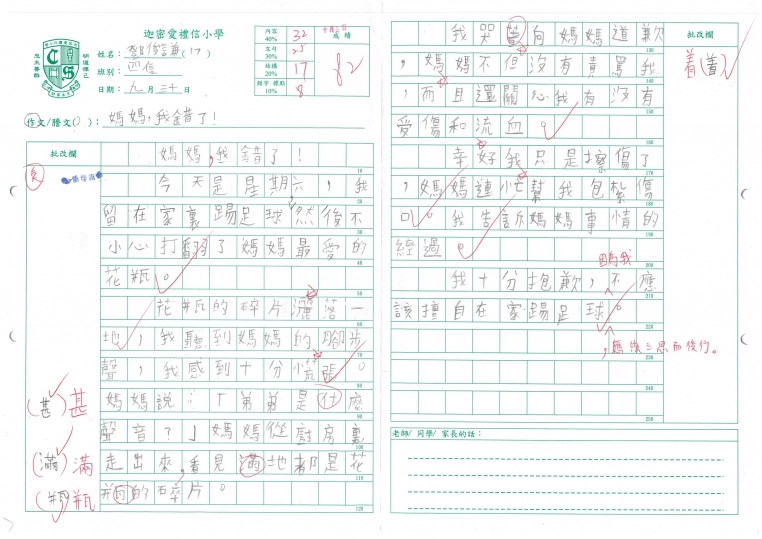 迦密愛禮信小學
內容 40% 32
文句 30% 25
結構 20% 17
錯字 標點 10% 8
成績
82
姓名：
班別：四信
日期：九月三十日
作文/謄文( )：媽媽，我錯了！
批改欄
媽媽，我錯了！
今天是星期六，我
留在家裏踢足球，然後不
小心打翻了媽媽最愛的
花瓶。
花瓶的碎片灑落一
地，我聽到媽媽的腳步
聲，我感到十分慌張。
媽媽說：「弟弟是什麼
聲音？」媽媽從廚房裏
走出來，看見滿地都是花
瓶的碎片。
(甚)甚
(滿)滿
(瓶)瓶
10
20
30
40
50
60
70
80
90
100
110
120
我哭着向媽媽道歉
，媽媽不但沒有責罵我
，而且還關心我有沒有
受傷和流血。
幸好我只是擦傷了
，媽媽連忙幫我包紮傷
口。我告訴媽媽事情的
經過。
因為我
我十分抱歉，不應
該擅自在家踢足球。
，應該三思而後行。
批改欄
着(着)
130
140
150
160
170
180
190
200
210
220
230
240
250
老師/ 同學/ 家長的話：